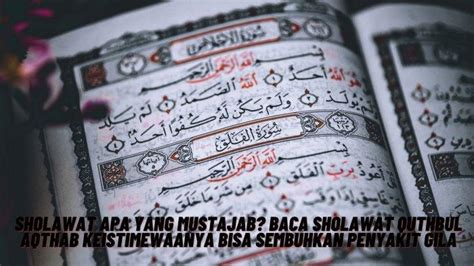 سُورَةُ الْإِخْلَاصِ
بِسْمِ اللَّهِ الرَّحْمَنِ الرَّحِيمِ
اللَّهُ أَحَدٌ اللَّهُ الصَّمَدُ لَمْ يَلِدْ
يُولَدْ وَلَمْ يَكُن لَّهُ كُفُوًا أَحَدٌ
سُورَةُ الْفَلَقِ
بِسْمِ اللَّهِ الرَّحْمَنِ الرَّحِيمِ
أَعُوذُ بِرَبِّ الْفَلَقِ
مِن شَرِّ مَا خَلَقَ
SHOLAWAT APA YANG MUSTAJAB? BACA SHOLAWAT QUTHBUL
AQTHAB KEISTIMEWAANYA BISA SEMBUHKAN PENYAKIT GILA